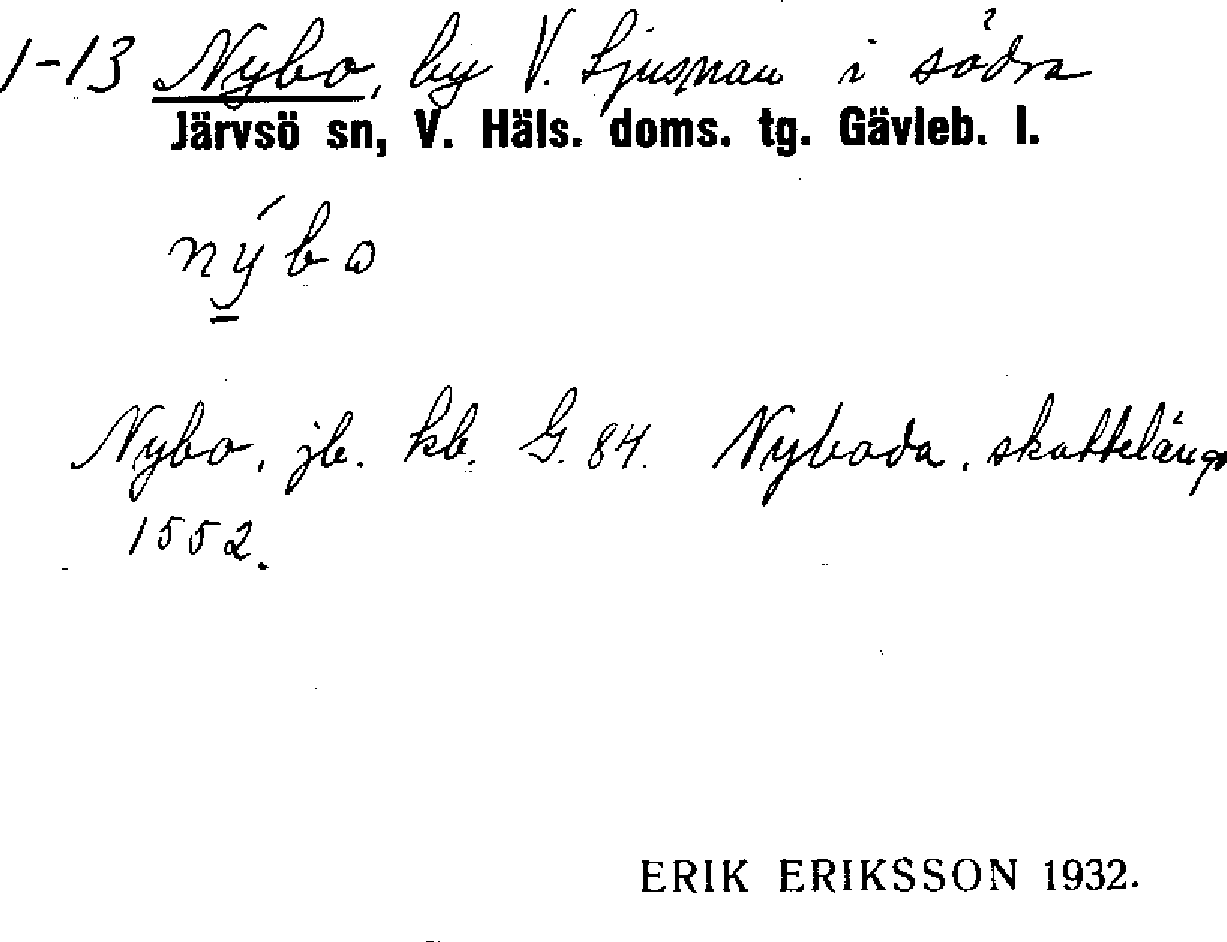 1-13 Nybo, by V. Ljusnan i södra
Järvsö sn, V. Häls. doms. tg. Gävleb. l.
nýbω
Nybo, jb. kb. G. 84. Nyboda, skattelängd
1552.
ERIK ERIKSSON 1932.